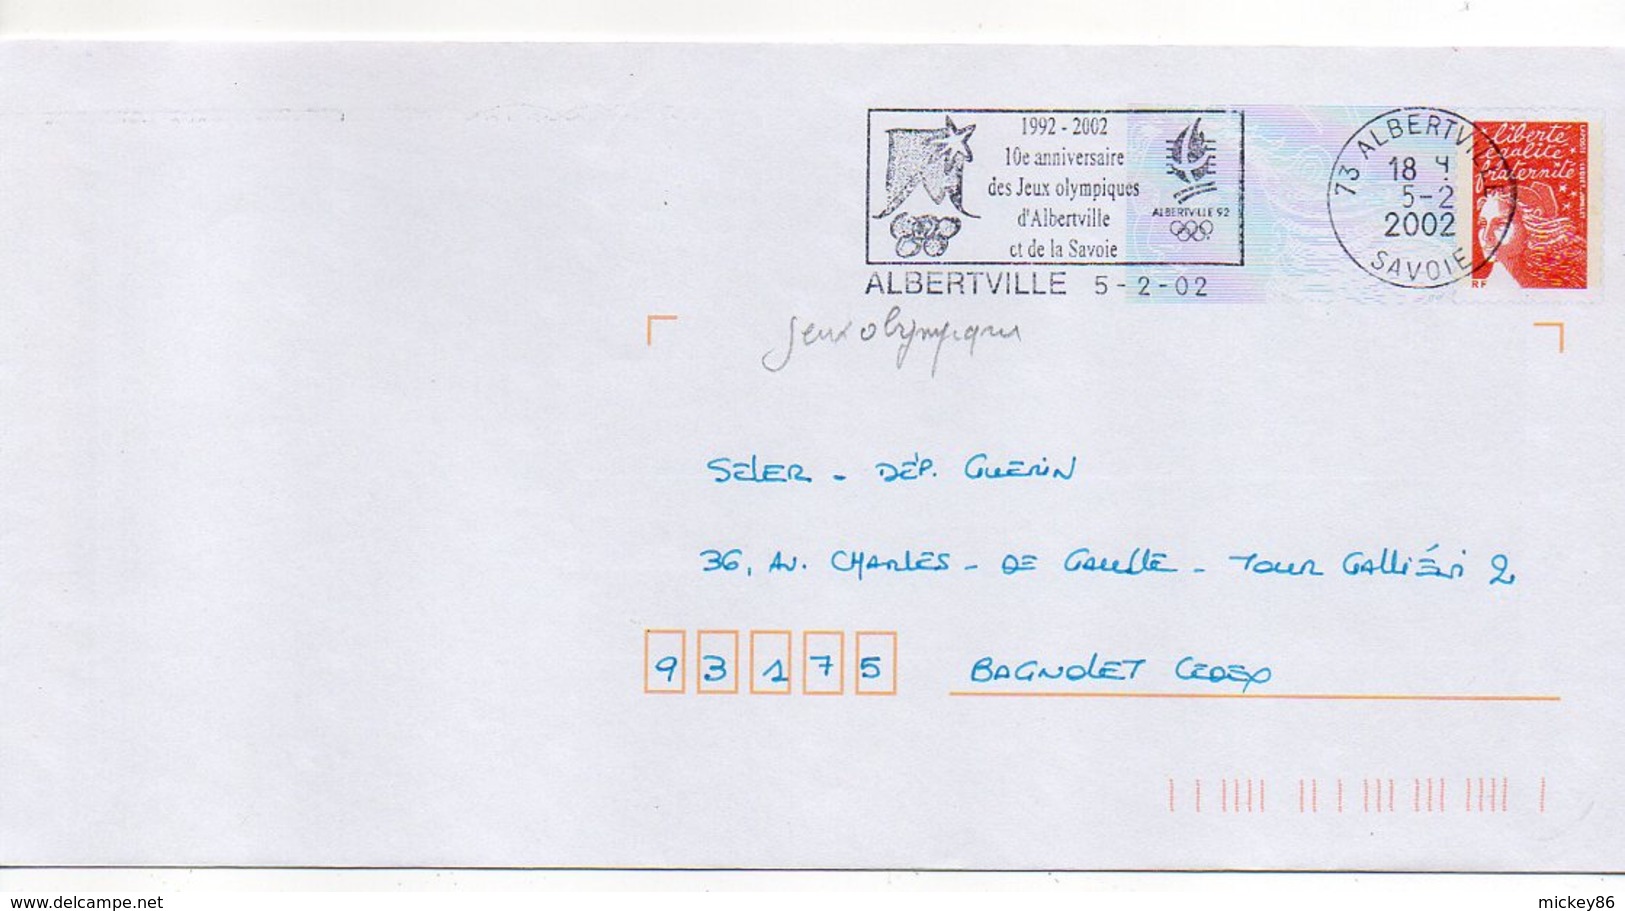 1992 - 2002
10e anniversaire
des Jeux olympiques
d'Albertville
et de la Savoie
ALBERTVILLE 92
ALBERTVILLE 5 - 2 - 02
73 ALBERTVILLE
18 H
5-2
2002
SAVOIE
liberté
égalité
fraternité
RF
LA POSTE
Jeux olympiques
SELER - DÉP. GUERIN
36, AV. CHARLES - DE GAULLE - TOUR GALLIÉNI 2
93175 BAGNOLET CEDEX
www.delcampe.net
mickey86